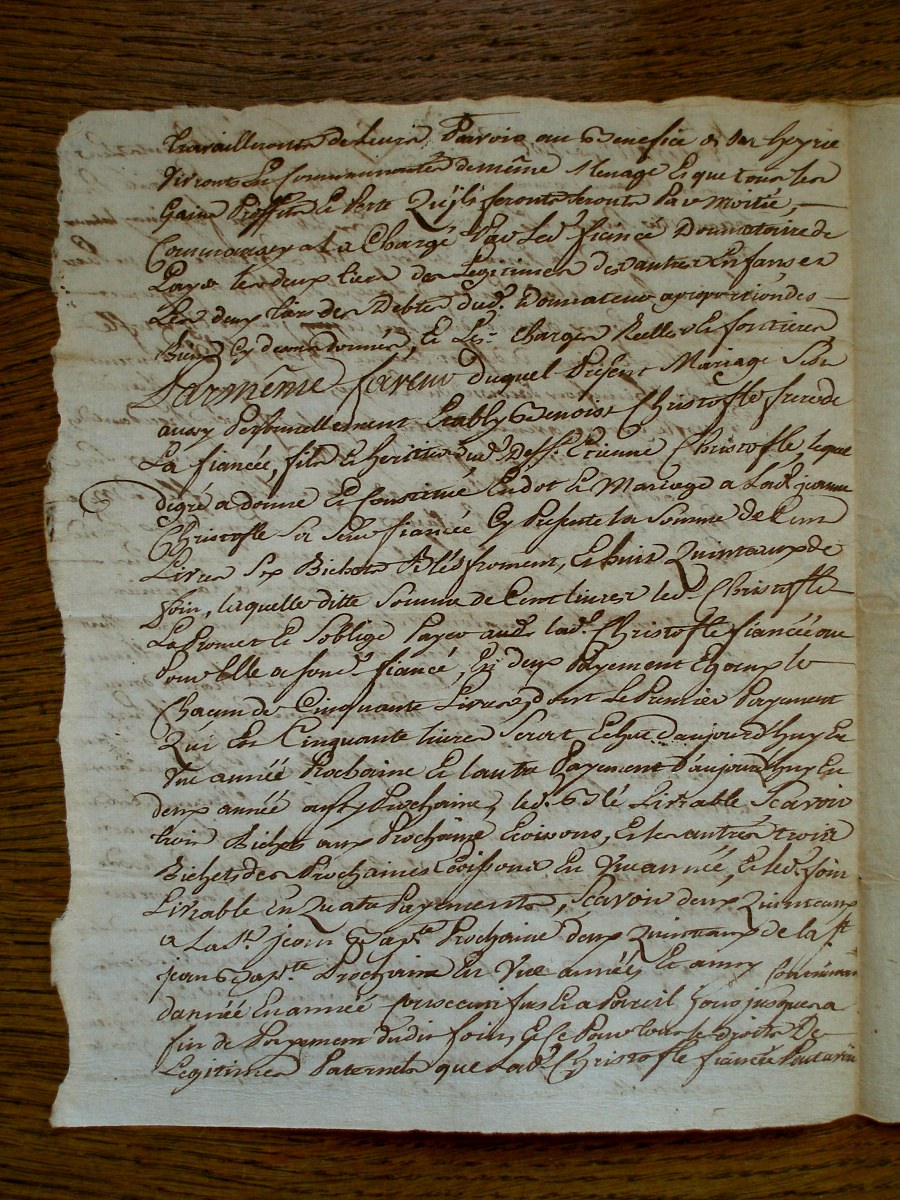 travailleront de leurs Pavoir au Benefice de
vivront En Communauté de même Menage Et que tous les
Gains Proffits Et Perte Quils feronts seronts Par Moitié,
Comme aussy a La Charge Par Led. fiancé Donnataire de
Payer les deux tier des Legitimes des autres Enfans et
Les deux tier des Debtes dud. Donnateur a proportion des
Biens Cy dessus donnés, Et Les Charges Reelles Et foncieres
Par même faveur duquel Present Mariage s'est
aussy Personnellement Etably Benoist Christofle frere de
La fiancée, fils Et heritier dud. deff. Etienne Christofle, lequel
degré a donné Et Constitué En dot Et Mariage a Lad. jeanne
Christofle Sa Sœur fiancée Cy Presente la Somme de Cent
Livres Six Bichets Blés froment, Et huit Quintaux de
foin, laquelle ditte Somme de Cent livres led. Christofle
La Promet Et Soblige Payer aud. lad. Christofle fiancée ou
Pour Elle a sond. fiancé, En deux Payement Egaux le
Chacun de Cinquante Livres, dont Le Premier Payement
Qui Est Cinquante livres Serat Echue daujourd'huy En
Une année Prochaine Et lautre Payement D'aujourd'huy En
deux année aussy Prochaine, led. Blé Livrable Scavoir
trois Bichets aux Prochaine Moissons, Et les autres trois
Bichets des Prochaines Moissons En Une année, Et led. foin
Livrable En Quatre Payements, Scavoir deux Quintaux
a La St. jean Bapte. Prochaine deux Quintaux de la St.
jean Bapte. Prochaine En Une années Et ainsy Continuant
dannée En année Consecutifus Et a Pareil jours jusques a
fin de Payement dudit foin, Et Ce Pour tous Droits De
Legitimes Paternels que Lad. Christofle fiancée